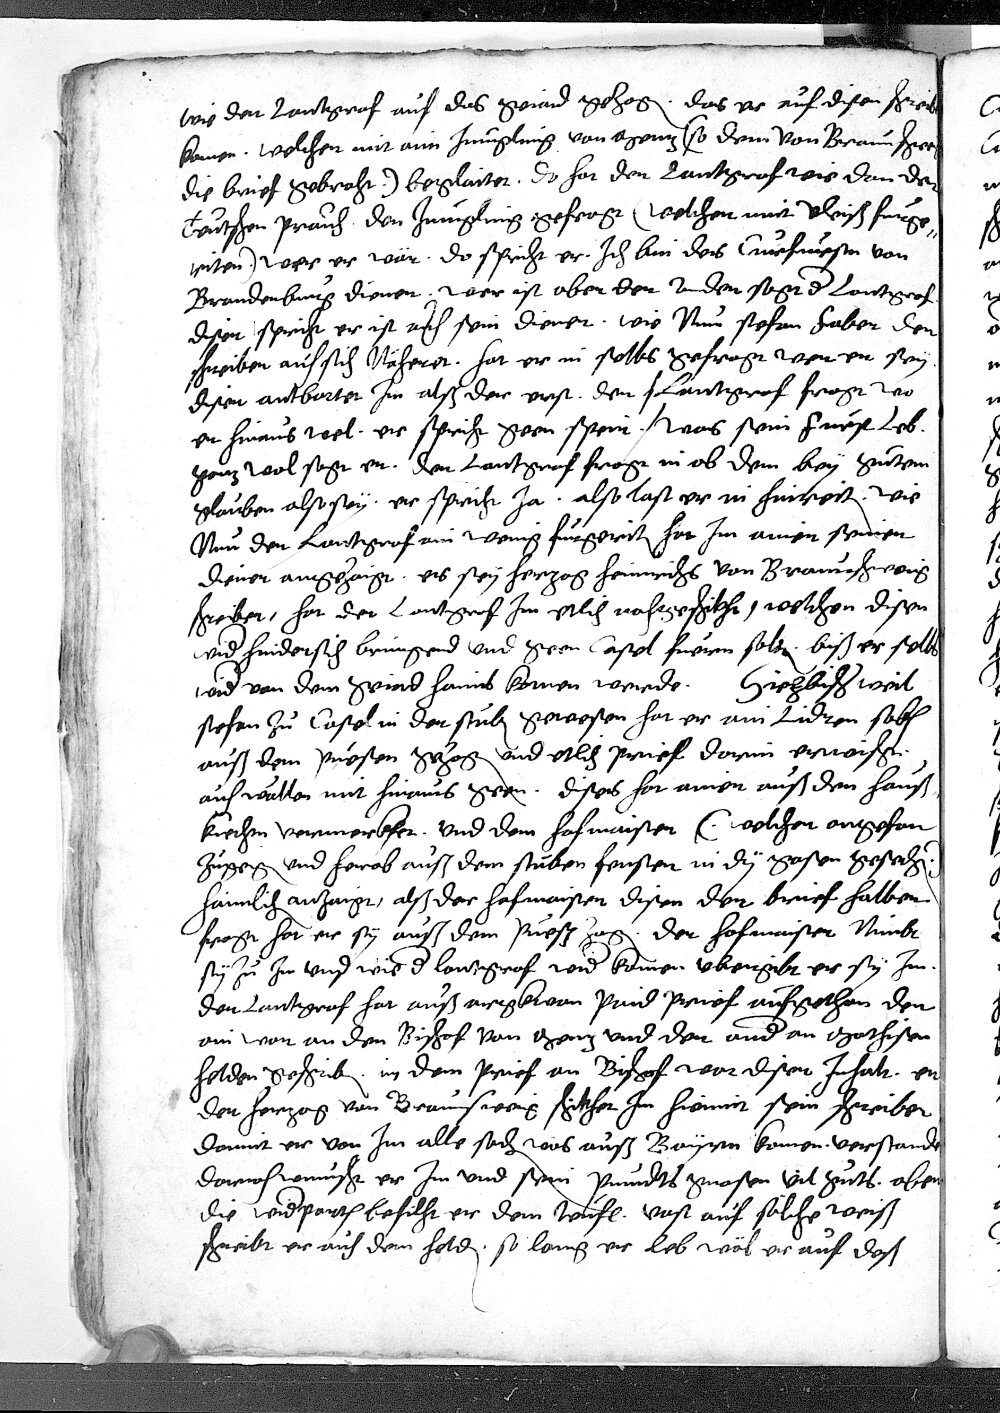 wie der Lantgraf auf das gejaid gezog. das er auf disen schreib
komen. welcher mit ain Jungling von Menz (so dem von Braunschw
die brief gebracht.) beglaitet. do hat der Lantgraf wie dan der
Teutschen prauch. den Jungling gefragt (welcher mit vleiß furge„
riten.) wer er wär. do spricht er. Ich bin des Curfursten von
Brandenburg diener. wer ist aber der ander sagt d Lantgraf.
diser spricht er ist auch sein diener. wie Nun stefan Faber der
schreiber auf sich Näheret. hat er in selbs gefragt wer er sey.
diser antbortet Im alß der erst. der Lantgraf fragt wo
er hinaus wel. er spricht geen speir. was sein Furst Leb.
ganz wol sagt er. der Lantgraf fragt in ob dem bey gutem
glauben also sey. er spricht Ja. also last er in hinreit. wie
Nun der Lantgraf ain wenig furgerit hat Im ainer seiner
diener angezaigt. es sey herzog heinrichs von Braunschweig
schreiber, hat der Lantgraf Im etlich nachgeschikht, welchen disen
wid hindersich bringend und geen Casel fueren solt. biß er selbs
wid von dem gejaid haims komen werde. weil
stefan zu Casel in der stub gewesen hat er ain Lidren sakh
auß dem puesen gezog und etlich prief darin erwischt.
auch wellen mit hinaus geen. dises hat ainer auß den hauß
knechten vermerkhet. und dem hofmaister (. welcher ongefar
zugeg und herab auß dem stuben fenster in dy gasen gesechen.)
haimlich anzaigt, alß der hofmaister disen der brief halben
fragt hat er sy auß dem puesn zog. der hofmaister Nimbt
sy zu Im und wie d lantgraf wid komen ubergibt er sy Im.
der Lantgraf hat auß argkwon paid prief aufgethan der
ain war an den Bischof von Menz und der and an Mathisen
helden geschrib. in dem prief an Bischof war diser Inhalt. er
der herzog von Braunsweig schikhet Im hiemit sein schreiber
damit er von Im alle sach was auß Bayren komen. verstande
darnach wunscht er Im und sein pundts gnosen vil guts. aber
die widparth befilcht er dem teufl. vast auf solche weiß
schreibt er auch dem held. so lang er leb wöl er auf daß